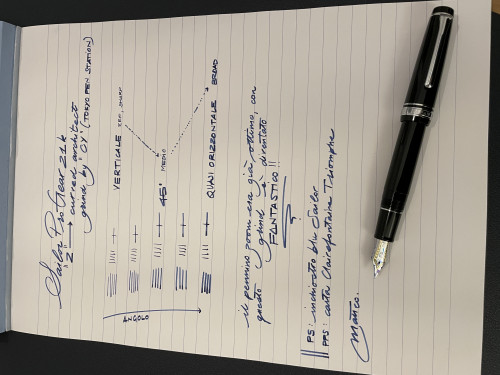 Sailor ProGear 21k
"Z" → curved architect
grind by "OY" (TOKYO PEN STATION)
VERTICALE
45° MEDIO
QUASI ORIZZONTALE BROAD
ANGOLO
il pennino zoom era già ottimo, con
questo grind → diventato
FANTASTICO!!
PS: inchiostro blu Sailor
PPS: carta Clairefontaine Triomphe